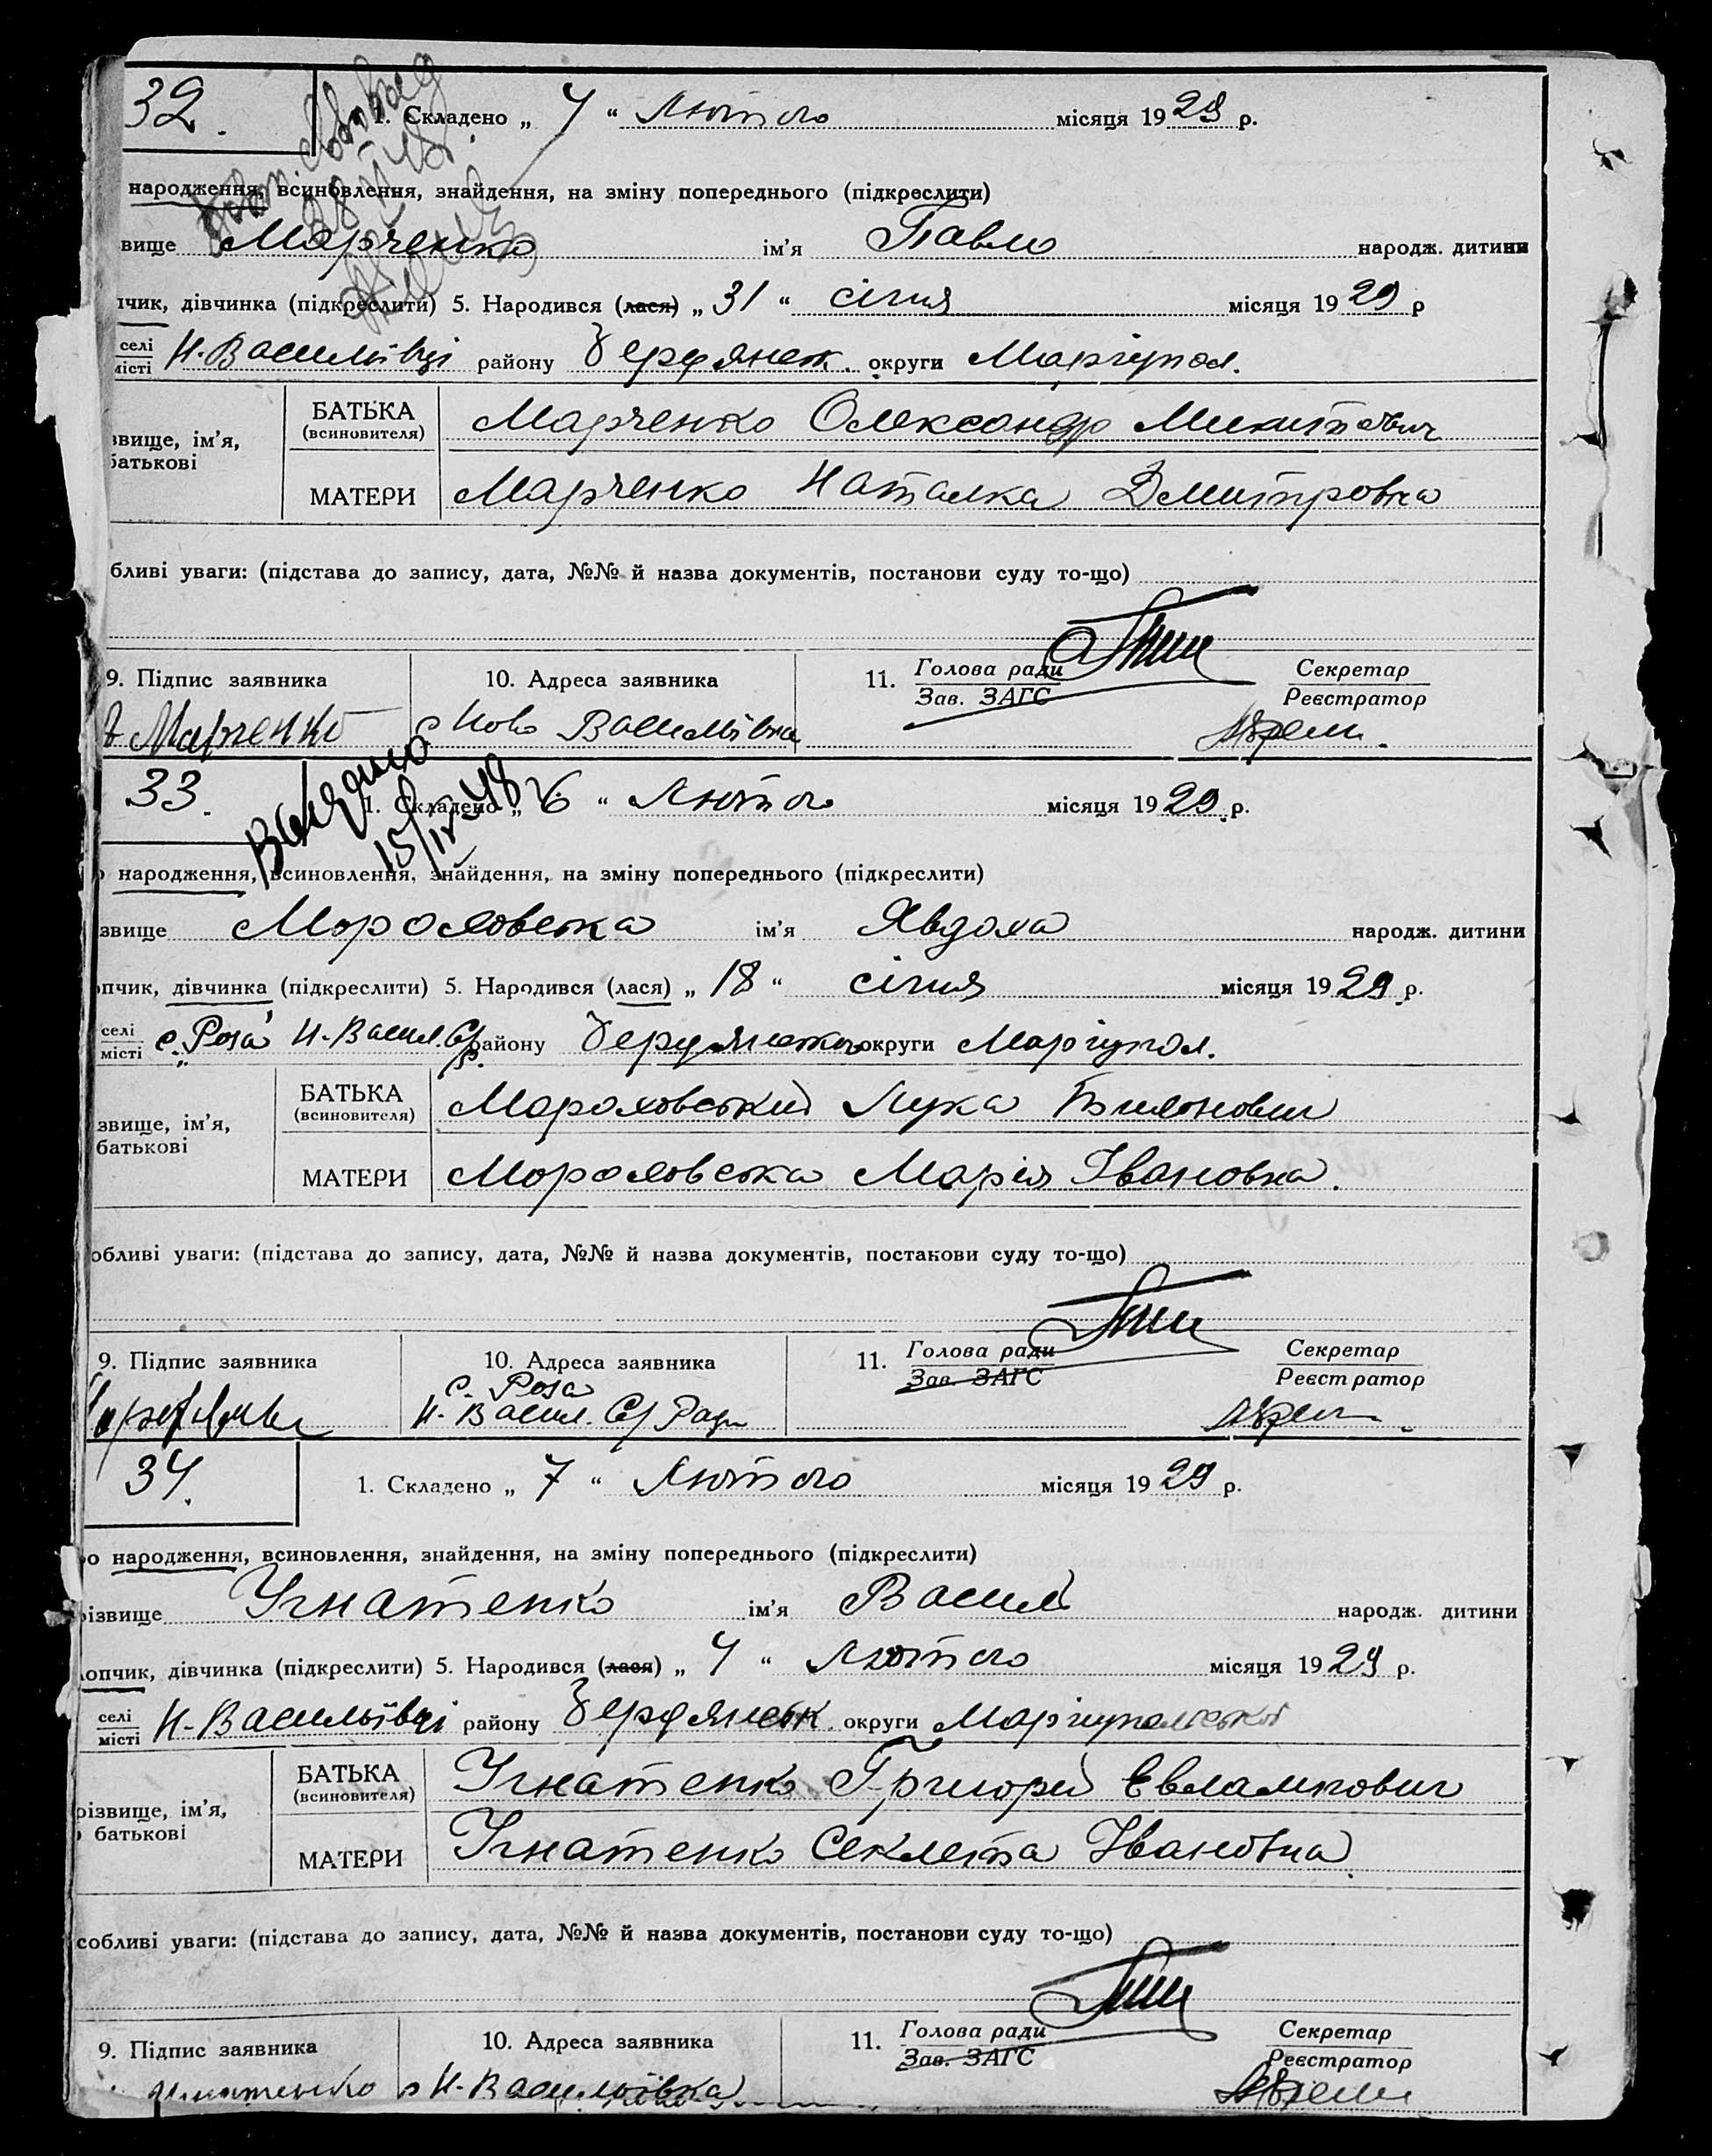 32.
1. Складено „ 4 “ Лютого місяця 1929 р.
народження, всиновлення, знайдення, на зміну попереднього (підкреслити)
вище Марченко ім'я Павло народж. дитини
пчик, дівчинка (підкреслити) 5. Народився (лася) „ 31 “ січня місяця 1929 р
селі
місті Н. Васильівці району Бердянськ. округи Маріупол.
звище, ім'я,
батькові
БАТЬКА
(всиновителя) Марченко Олександр Микитович
МАТЕРИ Марченко Наталка Дмитровна
бливі уваги: (підстава до запису, дата, №№ й назва документів, постанови суду то-що)
9. Підпис заявника 10. Адреса заявника 11. Голова ради Секретар
Зав. ЗАГС Реєстратор
Марченко с Ново Васильівка
33.
Видано
15/IV-48
1. Складено „ 6 “ Лютого місяця 1929 р.
о народження, всиновлення, знайдення, на зміну попереднього (підкреслити)
звище Мороховська ім'я Явдоха народж. дитини
опчик, дівчинка (підкреслити) 5. Народився (лася) „ 18 “ січня місяця 1929 р.
селі
місті с. „Роза“ Н-Васил. С/р. району Бердянського округи Маріупол.
звище, ім'я,
батькові
БАТЬКА
(всиновителя) Мороховський Лука
МАТЕРИ Мороховська Марія Івановна.
обливі уваги: (підстава до запису, дата, №№ й назва документів, постанови суду то-що)
9. Підпис заявника 10. Адреса заявника 11. Голова ради Секретар
Зав. ЗАГС Реєстратор
с. Роза
Н-Васил. С/Ради
34.
1. Складено „ 7 “ Лютого місяця 1929 р.
ро народження, всиновлення, знайдення, на зміну попереднього (підкреслити)
різвище Ігнатенко ім'я Василь народж. дитини
лопчик, дівчинка (підкреслити) 5. Народився (лася) „ 4 “ Лютого місяця 1929 р.
селі
місті Н-Васильівці району Бердянськ. округи Маріупольської
різвище, ім'я,
о батькові
БАТЬКА
(всиновителя) Ігнатенко Григорій Евлампович
МАТЕРИ Ігнатенко Секлета Івановна.
собливі уваги: (підстава до запису, дата, №№ й назва документів, постанови суду то-що)
9. Підпис заявника 10. Адреса заявника 11. Голова ради Секретар
Зав. ЗАГС Реєстратор
Игнатенко с Н-Васильівка